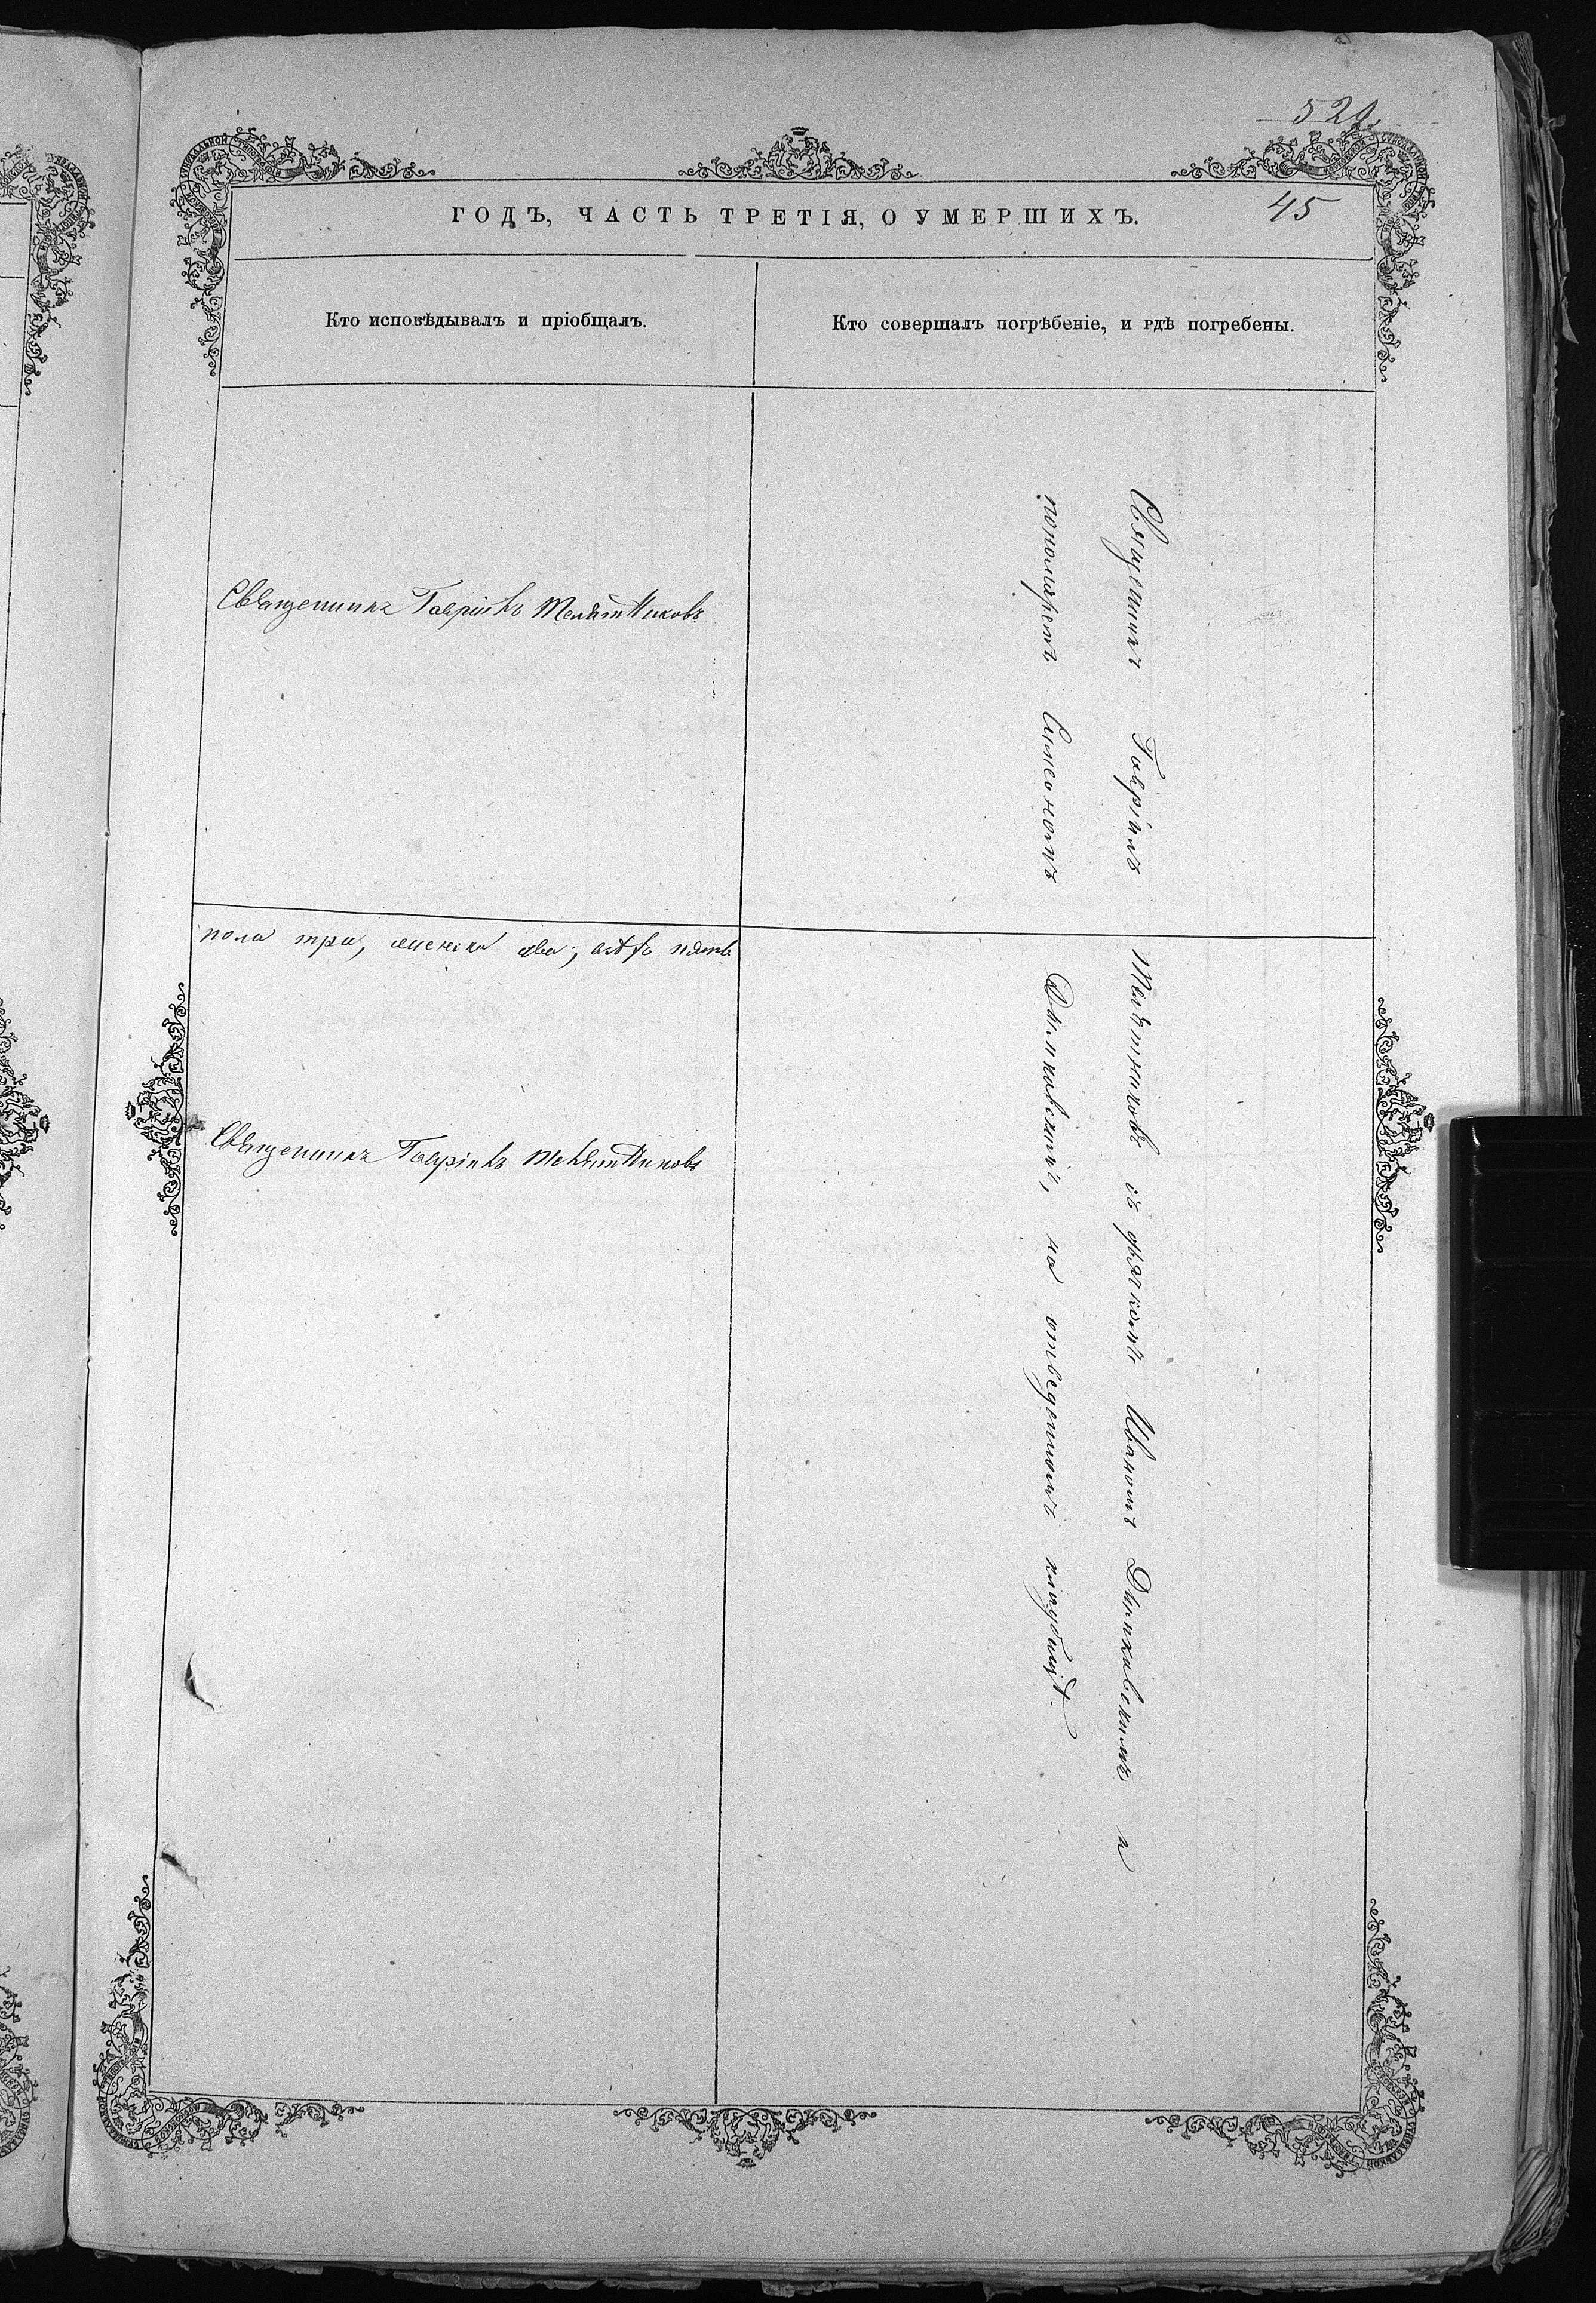 529.
ГОДЪ, ЧАСТЬ ТРЕТІЯ, О УМЕРШИХЪ.
45
Кто исповѣдывалъ и пріобщалъ.
Кто совершалъ погрѣбеніе, и гдѣ погребены.
Священникъ Гавріилъ Телятниковъ
пола три, женска два; всѣхъ пять
Священникъ Гавріилъ Телятниковъ
Священникъ Гавріилъ Телятниковъ съ дьячкомъ Иваномъ и
пономаремъ Симеономъ на отведенномъ кладбищѣ.